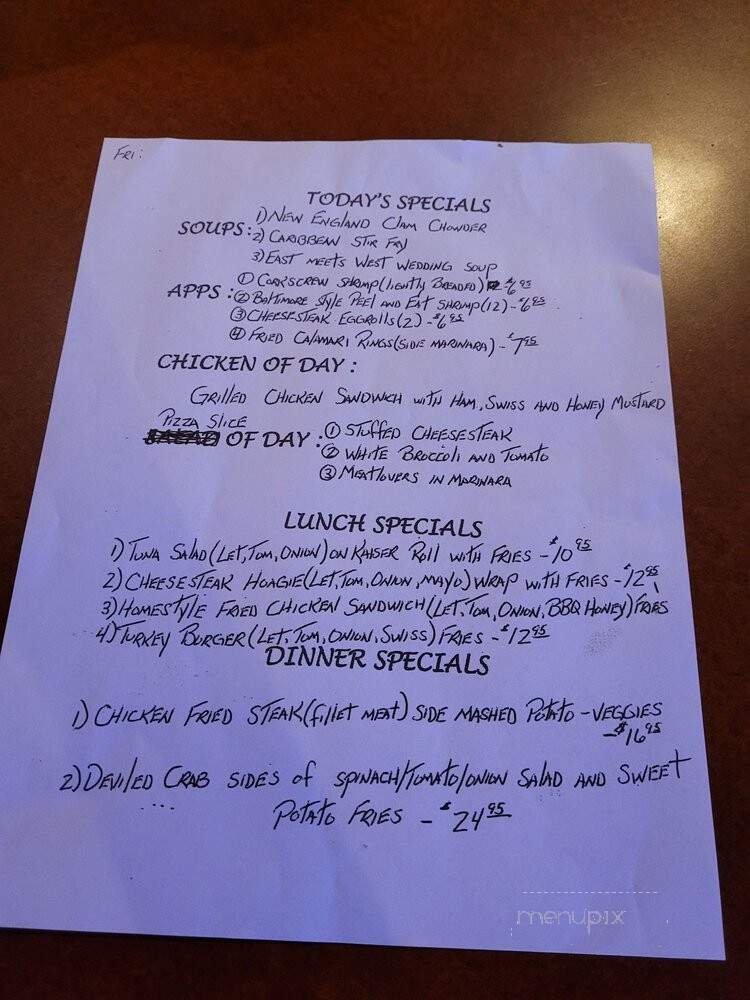 FRI:
TODAY'S SPECIALS
SOUPS: 1) NEW ENGLAND CLAM CHOWDER
2) CARIBBEAN STIR FRY
3) EAST MEETS WEST WEDDING SOUP
APPS: ① CORKSCREW SHRIMP (LIGHTLY BREADED) - $6.95
② BALTIMORE STYLE PEEL AND EAT SHRIMP (12) - $6.95
③ CHEESESTEAK EGGROLLS (2) - $6.95
④ FRIED CALAMARI RINGS (SIDE MARINARA) - $7.95
CHICKEN OF DAY:
GRILLED CHICKEN SANDWICH WITH HAM, SWISS AND HONEY MUSTARD
PIZZA SLICE
OF DAY: ① STUFFED CHEESESTEAK
② WHITE BROCCOLI AND TOMATO
③ MEATLOVERS IN MARINARA
LUNCH SPECIALS
1) TUNA SALAD (LET, TOM, ONION) ON KAISER ROLL WITH FRIES - $10.95
2) CHEESESTEAK HOAGIE (LET, TOM, ONION, MAYO) WRAP WITH FRIES - $12.95
3) HOMESTYLE FRIED CHICKEN SANDWICH (LET, TOM, ONION, BBQ HONEY) FRIES
4) TURKEY BURGER (LET, TOM, ONION, SWISS) FRIES - $12.95
DINNER SPECIALS
1) CHICKEN FRIED STEAK (fillET MEAT) SIDE MASHED POTATO - VEGGIES
- $16.95
2) DEVILED CRAB SIDES of SPINACH/TOMATO/ONION SALAD AND SWEET
POTATO FRIES - $24.95
menupix